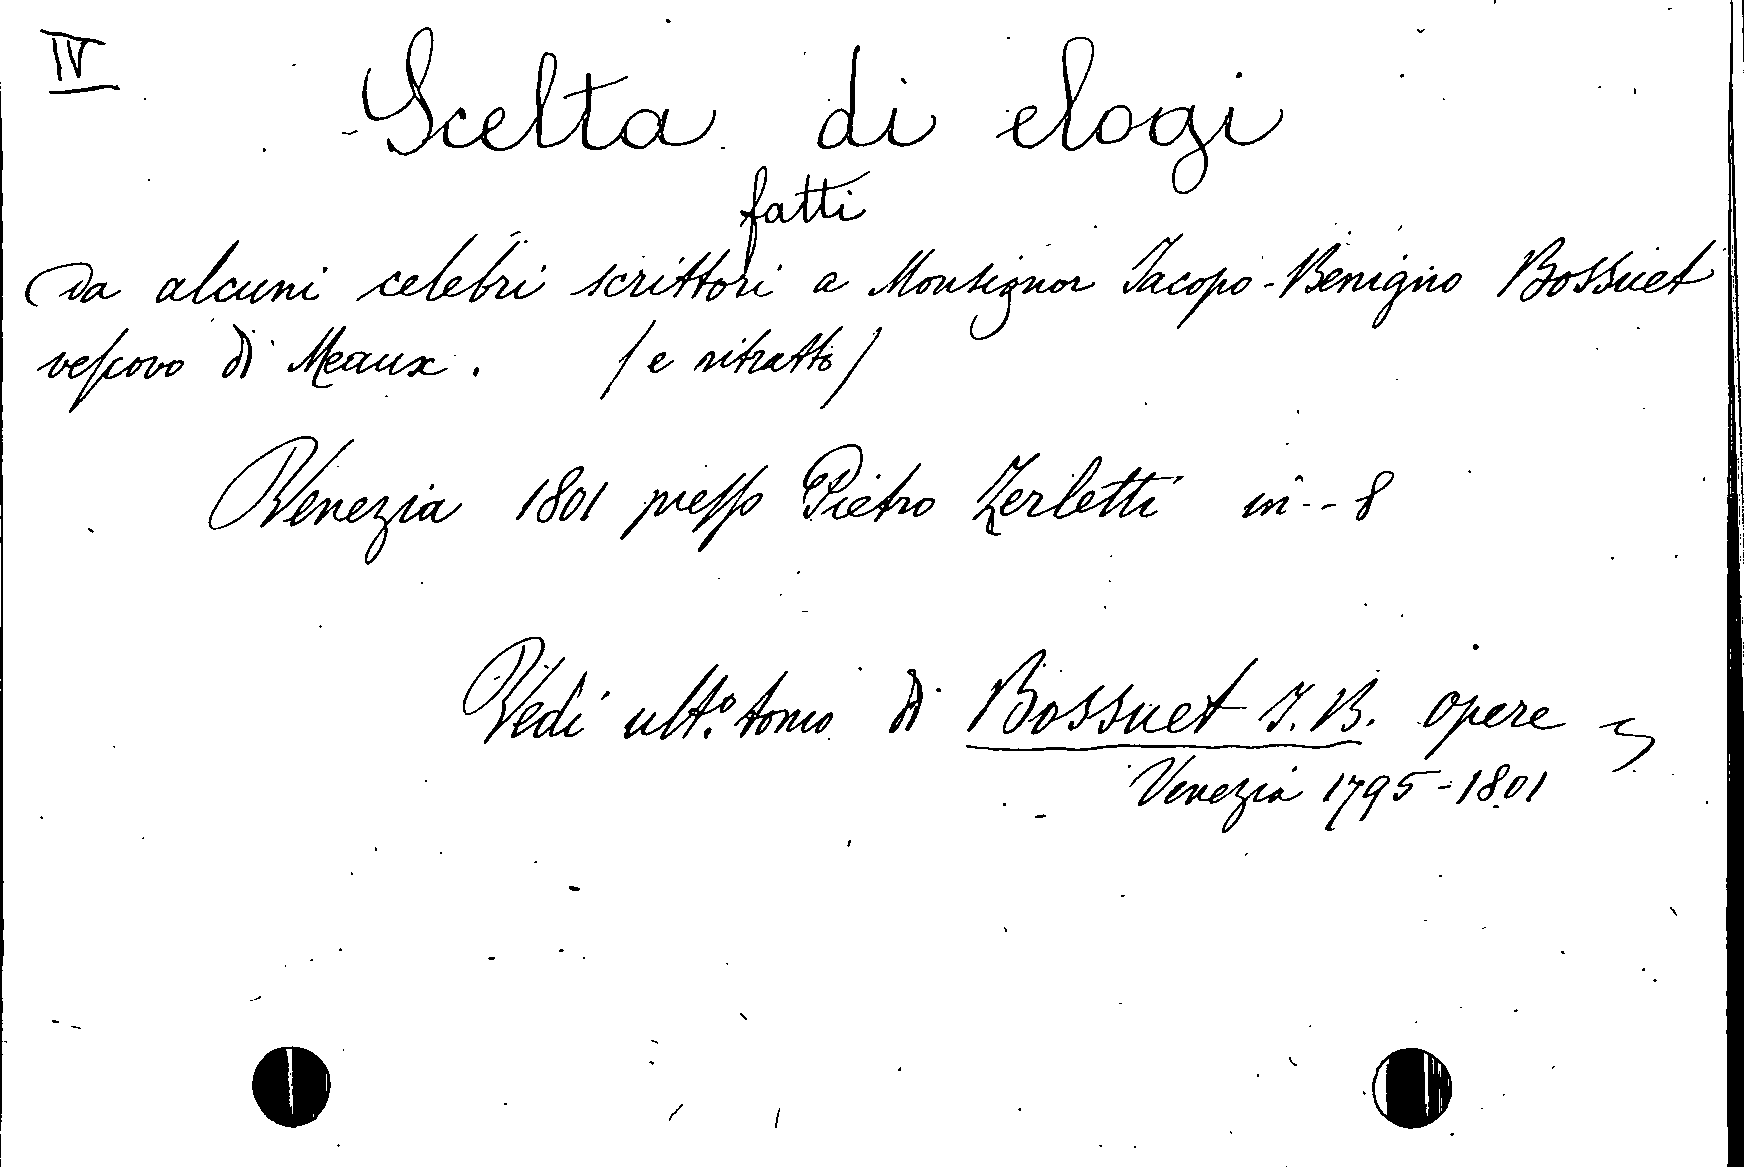 IV
Scelta di elogi
fatti
da alcuni celebri scrittori a Monsignor Jacopo-Benigno Bossuet
vescovo di Meaux. (e ritratto)
Venezia 1801 presso Pietro Zerletti in--8
Vedi ult.º tomo di Bossuet J. B. opere
Venezia 1795-1801